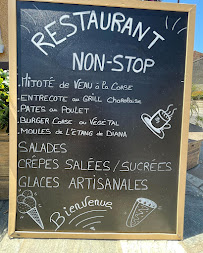 RESTAURANT
NON-STOP
. MITOTÉ DE VEAU à la CORSE
. ENTRECOTE AU GRILL Charolaise
. PATES AU POULET
. BURGER CORSE OU VEGETAL
. MOULES DE L'ETANG de DIANA
SALADES
CRÊPES SALÉES / SUCRÉES
GLACES ARTISANALES
Bienvenue